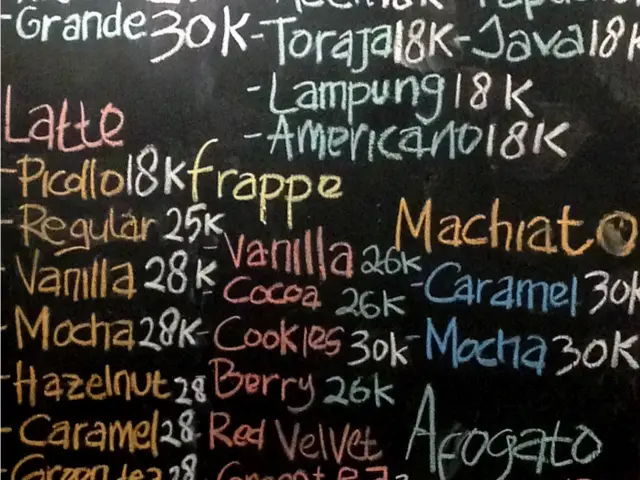 -Grande 30K
-Toraja 18K
-Java 18K
-Lampung 18K
-Americano 18K
Latte
-Picollo 18K
-Regular 25K
-Vanilla 28K
-Mocha 28K
-Hazelnut 28
-Caramel 28
frappe
Vanilla 26K
Cocoa 26K
-Cookies 30k
Berry 26K
Red Velvet
Machiato
-Caramel 30k
-Mocha 30K
Afogato